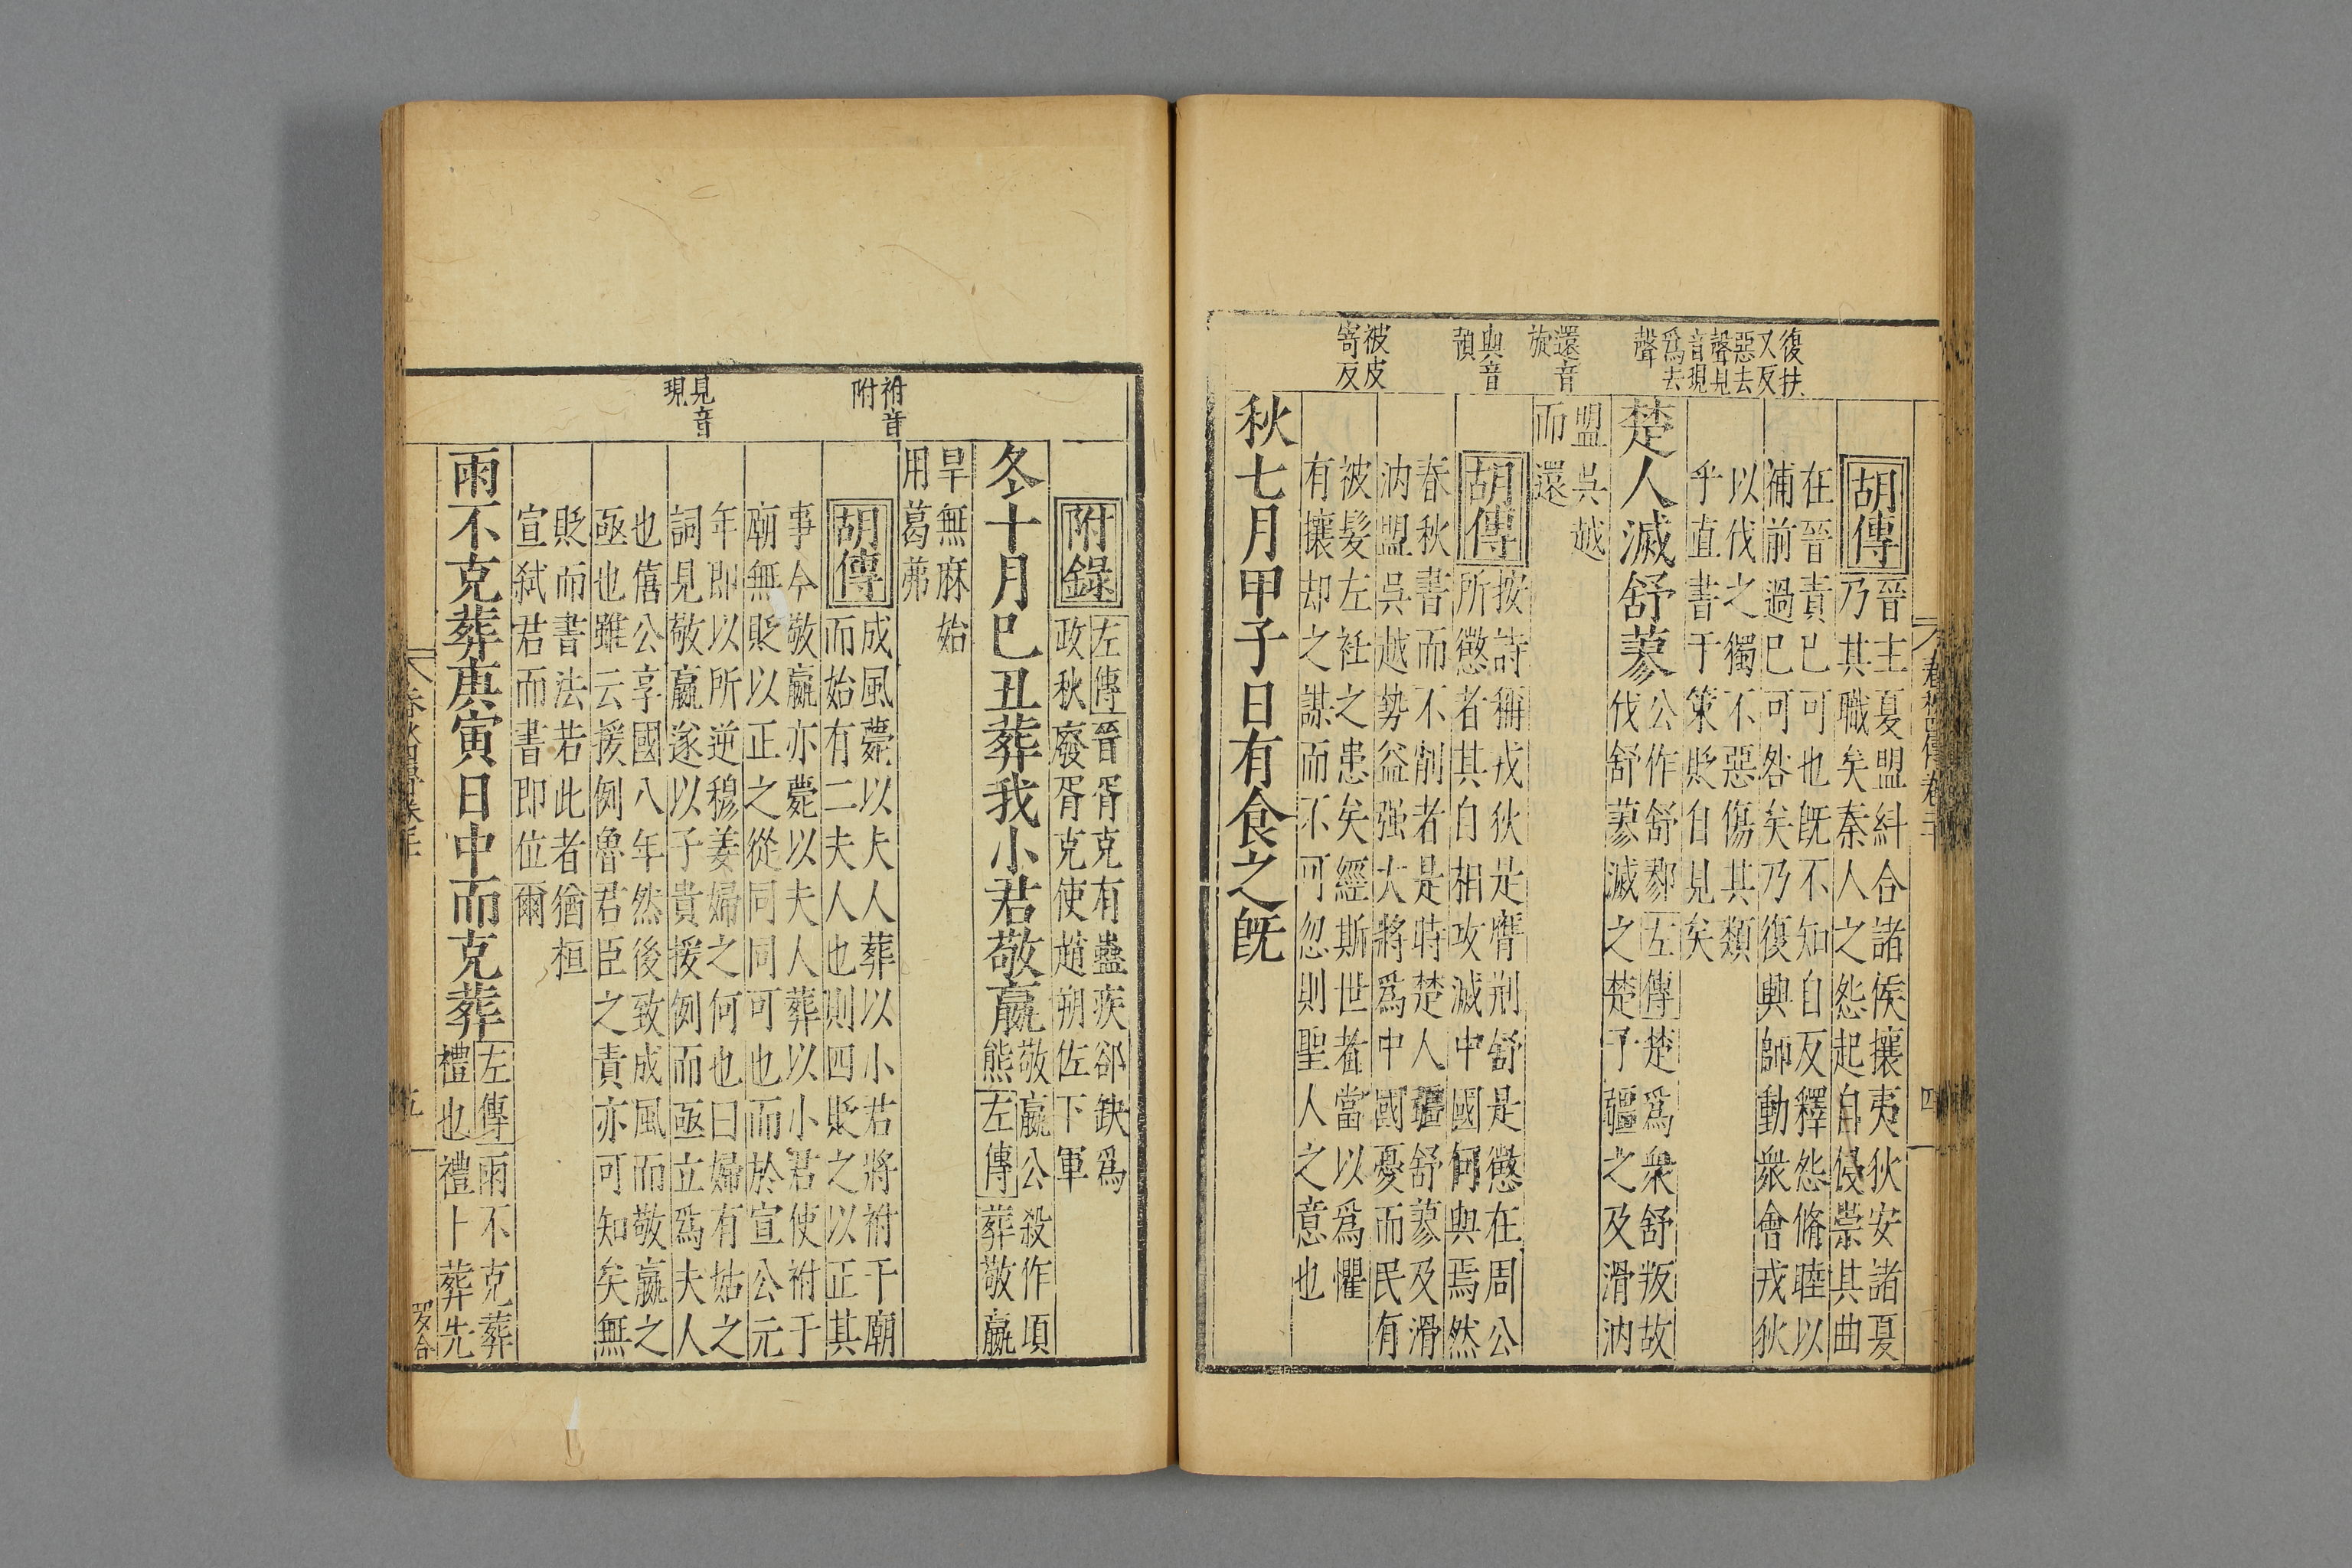 復扶
又反
惡去
聲見
音現
爲去
聲
還音
旋
與音
預
被皮
寄反
胡傳
晉主夏盟糾合諸侯攘夷狄安諸夏
乃其職矣秦人之怨起自侵崇其曲
在晉責已可也旣不知自反釋怨脩睦以
補前過已可咎矣乃復興師動衆會戎狄
以伐之獨不惡傷其類
乎直書于策貶自見矣
楚人滅舒蓼
公作舒鄝左傳楚爲衆舒叛故
伐舒蓼滅之楚子疆之及滑汭
盟吳越
而還
胡傳
按詩稱戎狄是膺荆舒是懲在周公
所懲者其自相攻滅中國何與焉然
春秋書而不削者是時楚人疆舒蓼及滑
汭盟吳越勢益强大將爲中國憂而民有
被髮左衽之患矣經斯世者當以爲懼
有攘却之謀而不可忽則聖人之意也
秋七月甲子日有食之旣
祔音
附
見音
現
附錄
左傳晉胥克有蠱疾郤缺爲
政秋廢胥克使趙朔佐下軍
冬十月巳丑葬我小君敬嬴
敬嬴公穀作頃
熊左傳葬敬嬴
旱無麻始
用葛茀
胡傳
成風薨以夫人葬以小君將祔于廟
而始有二夫人也則四貶之以正其
事今敬嬴亦薨以夫人葬以小君使祔于
廟無貶以正之從同同可也而於宣公元
年即以所逆穆姜婦之何也曰婦有姑之
詞見敬嬴遂以子貴援例而亟立爲夫人
也僖公享國八年然後致成風而敬嬴之
亟也雖云援例魯君臣之責亦可知矣無
貶而書法若此者猶桓
宣弑君而書即位爾
雨不克葬庚寅日中而克葬
左傳雨不克葬
禮也禮卜葬先